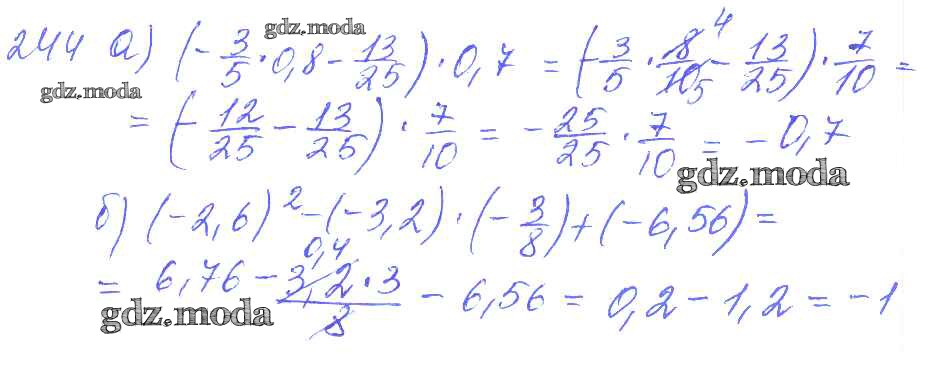 gdz.moda
244 а) (-3/5 · 0,8 - 13/25) · 0,7 = (-3/5 · 8/10 4 5 - 13/25) · 7/10 =
gdz.moda
= (-12/25 - 13/25) · 7/10 = -25/25 · 7/10 = -0,7
gdz.moda
б) (-2,6)² - (-3,2) · (-3/8) + (-6,56) =
0,4
= 6,76 - 3,2 · 3/8 - 6,56 = 0,2 - 1,2 = -1
gdz.moda